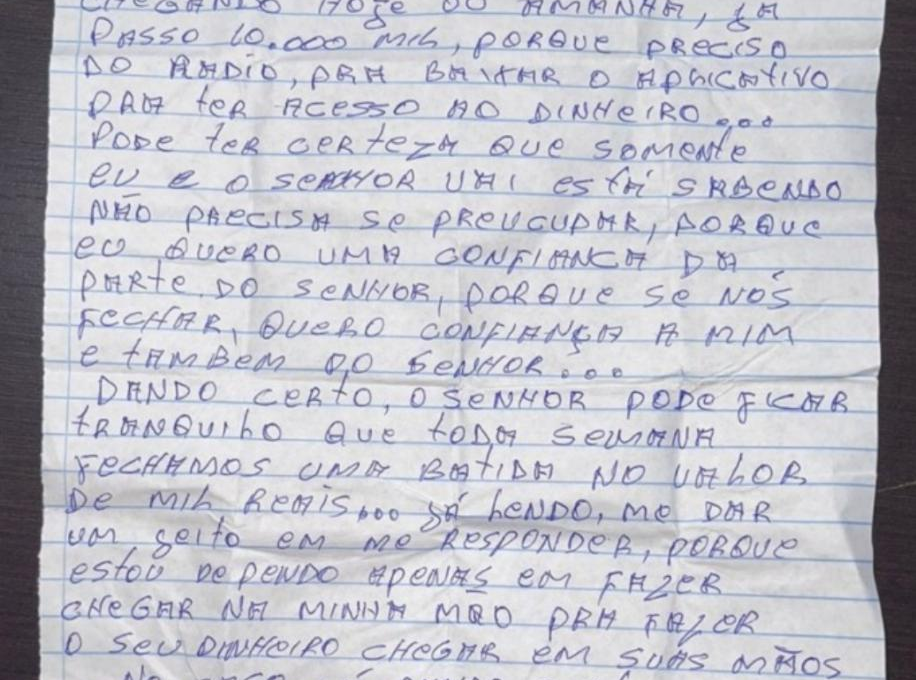 CHEGANDO HOJE OU AMANHÃ, JÁ
PASSO 10.000 MIL, PORQUE PRECISO
DO RADIO, PRA BAIXAR O APLICATIVO
PRA TER ACESSO AO DINHEIRO...
PODE TER CERTEZA QUE SOMENTE
EU E O SENHOR VAI ESTÁ SABENDO
NÃO PRECISA SE PREUCUPAR, PORQUE
EU QUERO UMA CONFIANÇA DA
PARTE DO SENHOR, PORQUE SE NÓS
FECHAR, QUERO CONFIANÇA A MIM
E TAMBEM DO SENHOR...
DANDO CERTO, O SENHOR PODE FICAR
TRANQUILO QUE TODA SEMANA
FECHAMOS UMA BATIDA NO VALOR
DE MIL REAIS... JÁ LENDO, ME DAR
UM GEITO EM ME RESPONDER, PORQUE
ESTOU DEPENDO APENAS EM FAZER
CHEGAR NA MINHA MÃO PRA FAZER
O SEU DINHEIRO CHEGAR EM SUAS MÃOS